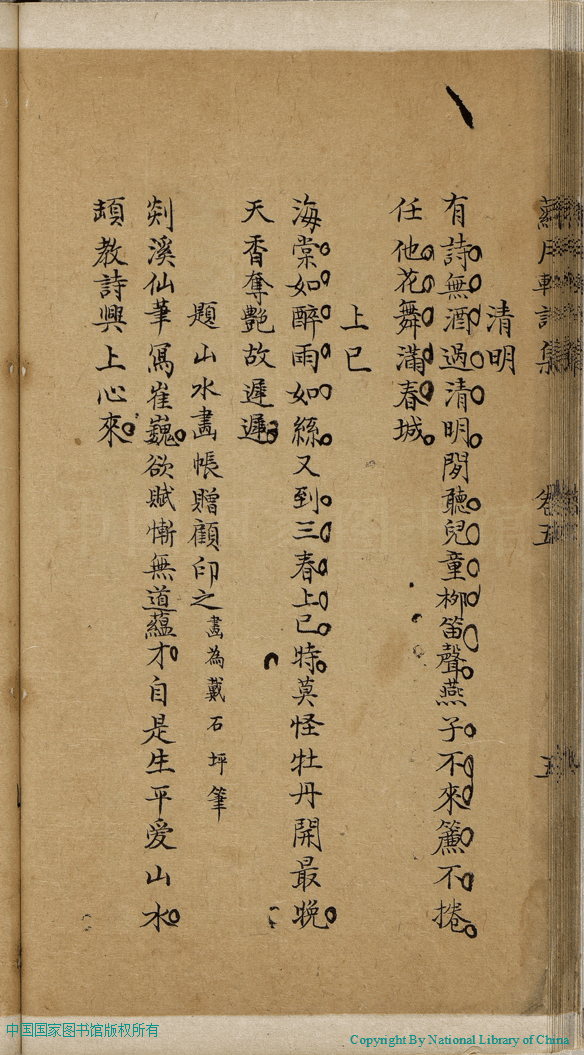 清明
有詩無酒過清明閒聽兒童柳笛聲燕子不來簾不捲
任他花舞滿春城
上巳
海棠如醉雨如絲又到三春上巳時莫怪牡丹開最晚
天香奪艷故遲遲
題山水畫帳贈顧印之畫為戴石坪筆
剡溪仙筆寫崔巍欲賦慚無道蘊才自是生平愛山水
頓教詩興上心來
月軒詩集 卷五 五
中国国家图书馆版权所有
Copyright By National Library of China